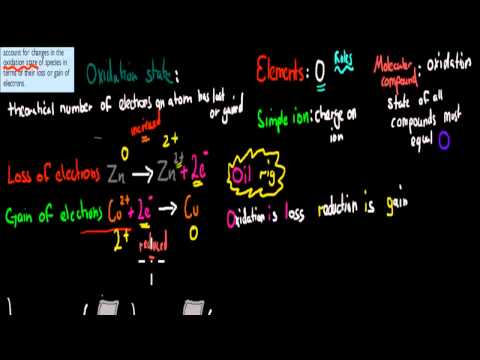 account for changes in the
oxidation state of species in
terms of their loss or gain of
electrons.
Oxidation state:
theoretical number of electrons an atom has lost
or gained
Elements: O
Rules
Simple ion: charge on
ion
Molecular
compound: oxidation
state of all
compounds must
equal O
increased
0 2+
Loss of electrons Zn → Zn2+ + 2e-
Gain of electrons Cu2+ + 2e- → Cu
2+ 0
reduced
Oil rig
Oxidation is loss reduction is gain